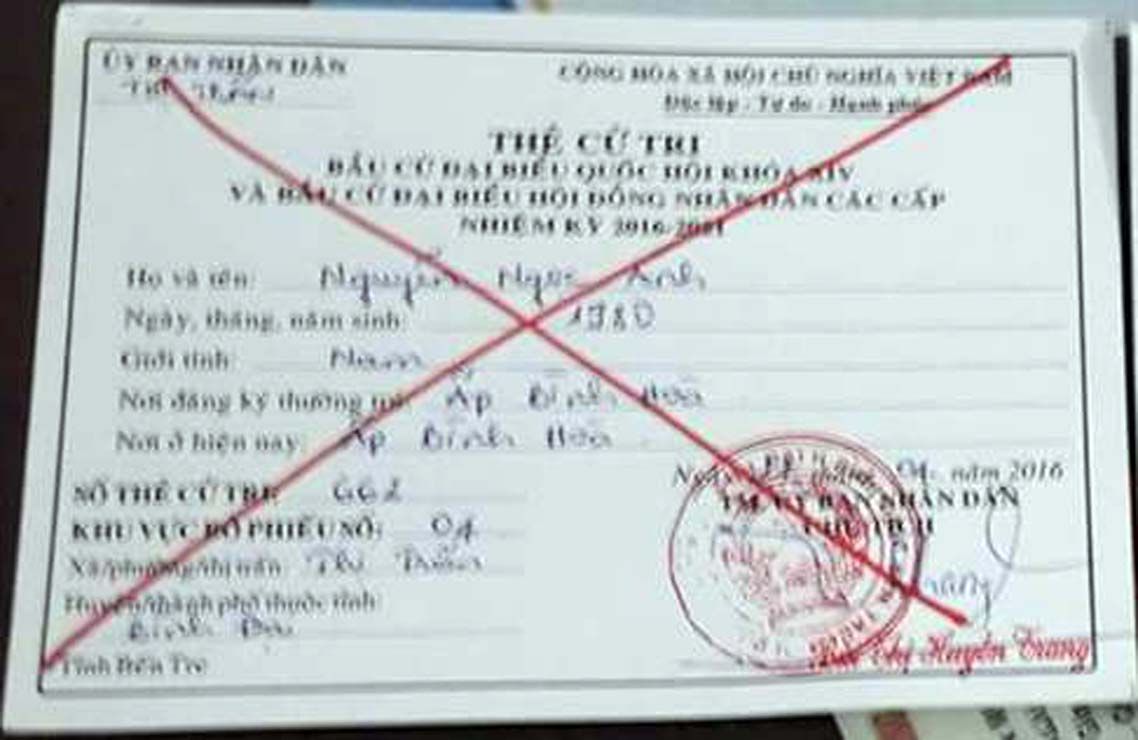 ỦY BAN NHÂN DÂN
Thị Trấn
CỘNG HÒA XÃ HỘI CHỦ NGHĨA VIỆT NAM
Độc lập - Tự do - Hạnh phúc
THẺ CỬ TRI
BẦU CỬ ĐẠI BIỂU QUỐC HỘI KHÓA XIV
VÀ BẦU CỬ ĐẠI BIỂU HỘI ĐỒNG NHÂN DÂN CÁC CẤP
NHIỆM KỲ 2016-2021
Họ và tên: Nguyễn Ngọc Ánh
Ngày, tháng, năm sinh: 1980
Giới tính: Nam
Nơi đăng ký thường trú: Ấp Bình Hòa
Nơi ở hiện nay: Ấp Bình Hòa
SỐ THẺ CỬ TRI: 662
KHU VỰC BỎ PHIẾU SỐ: 04
Xã/phường/thị trấn: Thị Trấn
Huyện/thành phố thuộc tỉnh:
Bình Đại
Tỉnh Bến Tre
Ngày tháng 04 năm 2016
TM. ỦY BAN NHÂN DÂN
CHỦ TỊCH
Thị Huyền Trang